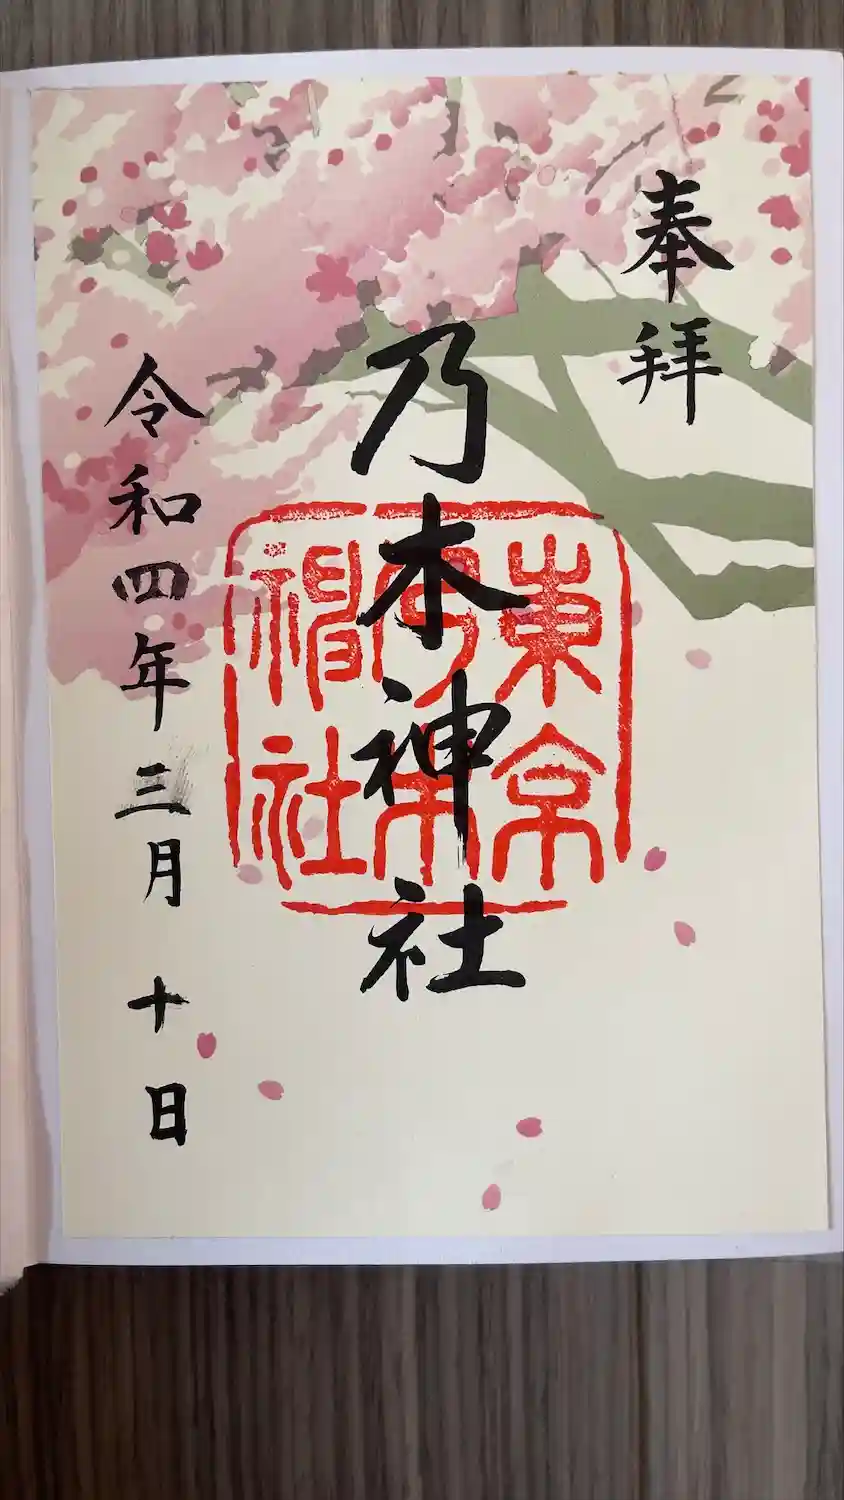 奉拝
乃木神社
東京
乃木
神社
令和四年三月十日